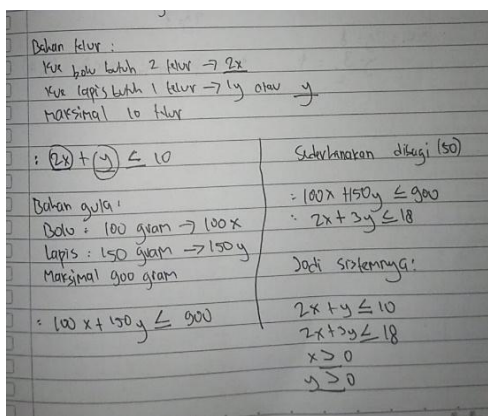 Bahan telur :
Kue bolu butuh 2 telur → 2x
Kue lapis butuh 1 telur → 1y atau y
Maksimal 10 telur
: 2x + y ≤ 10
Bahan gula :
Bolu : 100 gram → 100x
Lapis : 150 gram → 150y
Maksimal 900 gram
: 100x + 150y ≤ 900
Sederhanakan dibagi (50)
: 100x + 150y ≤ 900
: 2x + 3y ≤ 18
Jadi sistemnya :
2x + y ≤ 10
2x + 3y ≤ 18
x ≥ 0
y ≥ 0